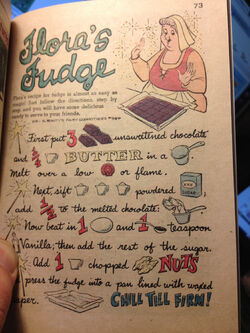 73
Flora's
Fudge
Flora's recipe for fudge is almost as easy as
magic! Just follow the directions, step by
step, and you will have some delicious
candy to serve to your friends.
First put 3 unsweetened chocolate
and BUTTER in a
Melt over a low or flame.
Next, sift powdered
SUGAR
add 1/2 to the melted chocolate.
Now beat in 1 and 1 teaspoon
Vanilla; then add the rest of the sugar.
Add 1 chopped NUTS
press the fudge into a pan lined with waxed
paper. CHILL TILL FIRM!